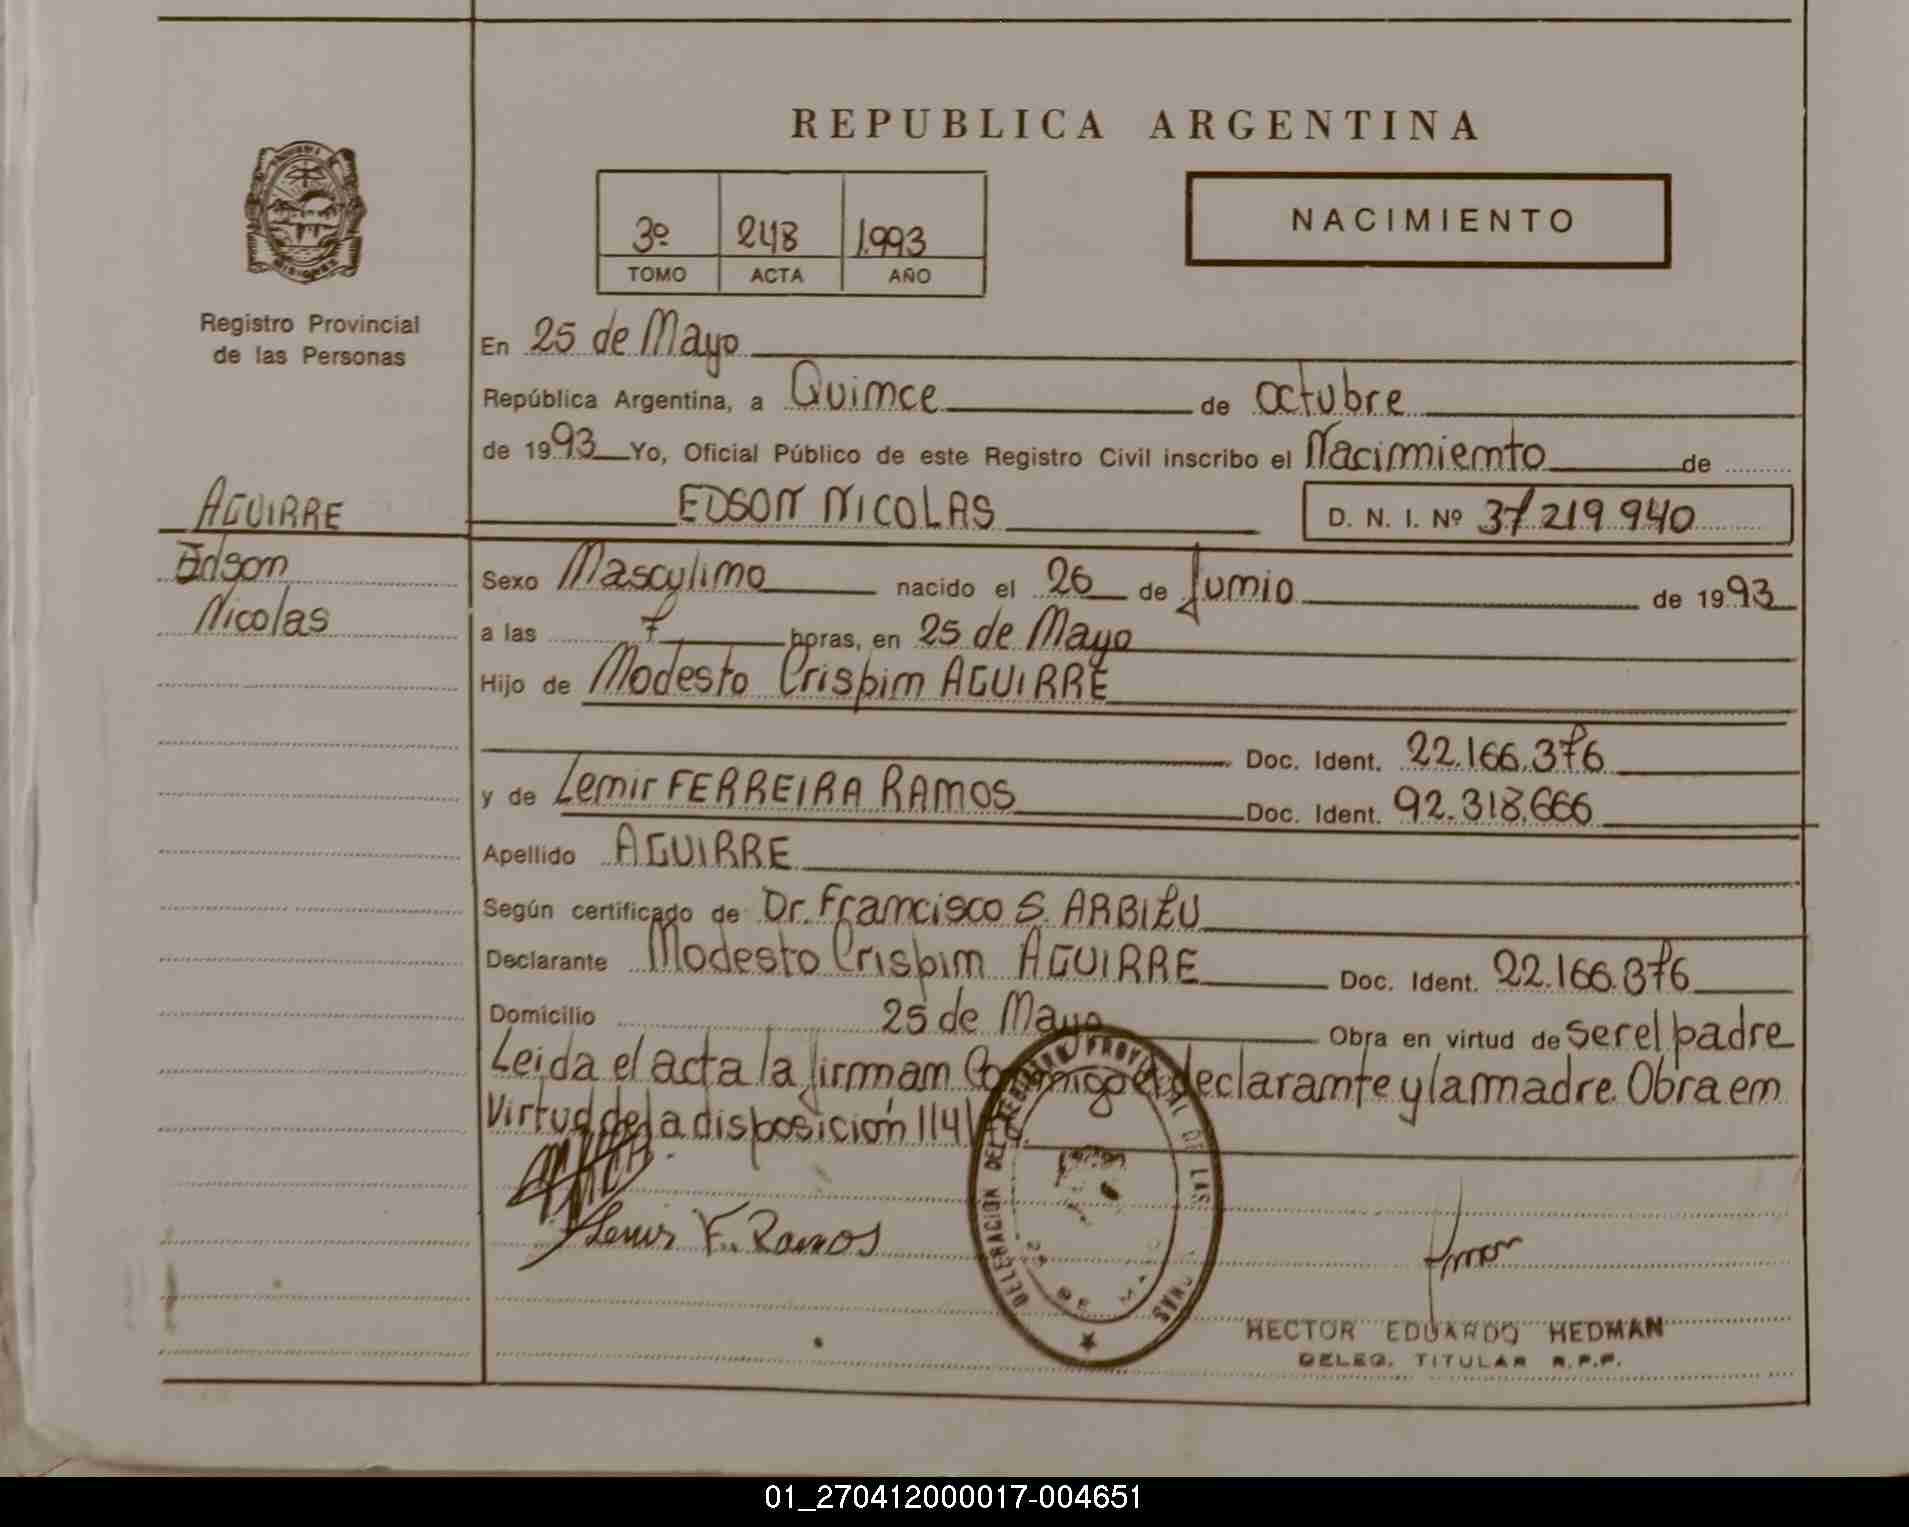 REPUBLICA ARGENTINA
NACIMIENTO
3º 248 1.993
TOMO ACTA AÑO
MISIONES
Registro Provincial
de las Personas
En 25 de Mayo
República Argentina, a Quince de octubre
de 1993 Yo, Oficial Público de este Registro Civil inscribo el Nacimiento de
AGUIRRE
EDSON NICOLAS D. N. I. Nº 37 219 940
Edson
Nicolas
Sexo Masculino nacido el 26 de Junio de 1993
a las 7 horas, en 25 de Mayo
Hijo de Modesto Crispin AGUIRRE
Doc. Ident. 22.166.376
y de Lemir FERREIRA RAMOS Doc. Ident. 92.318.666
Apellido AGUIRRE
Según certificado de Dr. Francisco S. ARBIEU
Declarante Modesto Crispin AGUIRRE Doc. Ident. 22.166.376
Domicilio 25 de Mayo Obra en virtud de ser el padre
Leida el acta la firman Conmigo el declarante y la madre. Obra en
Virtud de la disposición 114
Lemir F. Ramos
DELEGACION DEL REGISTRO PROVINCIAL DE LAS
25 DE MA
HECTOR EDUARDO HEDMAN
DELEG. TITULAR R.P.P.
01_270412000017-004651